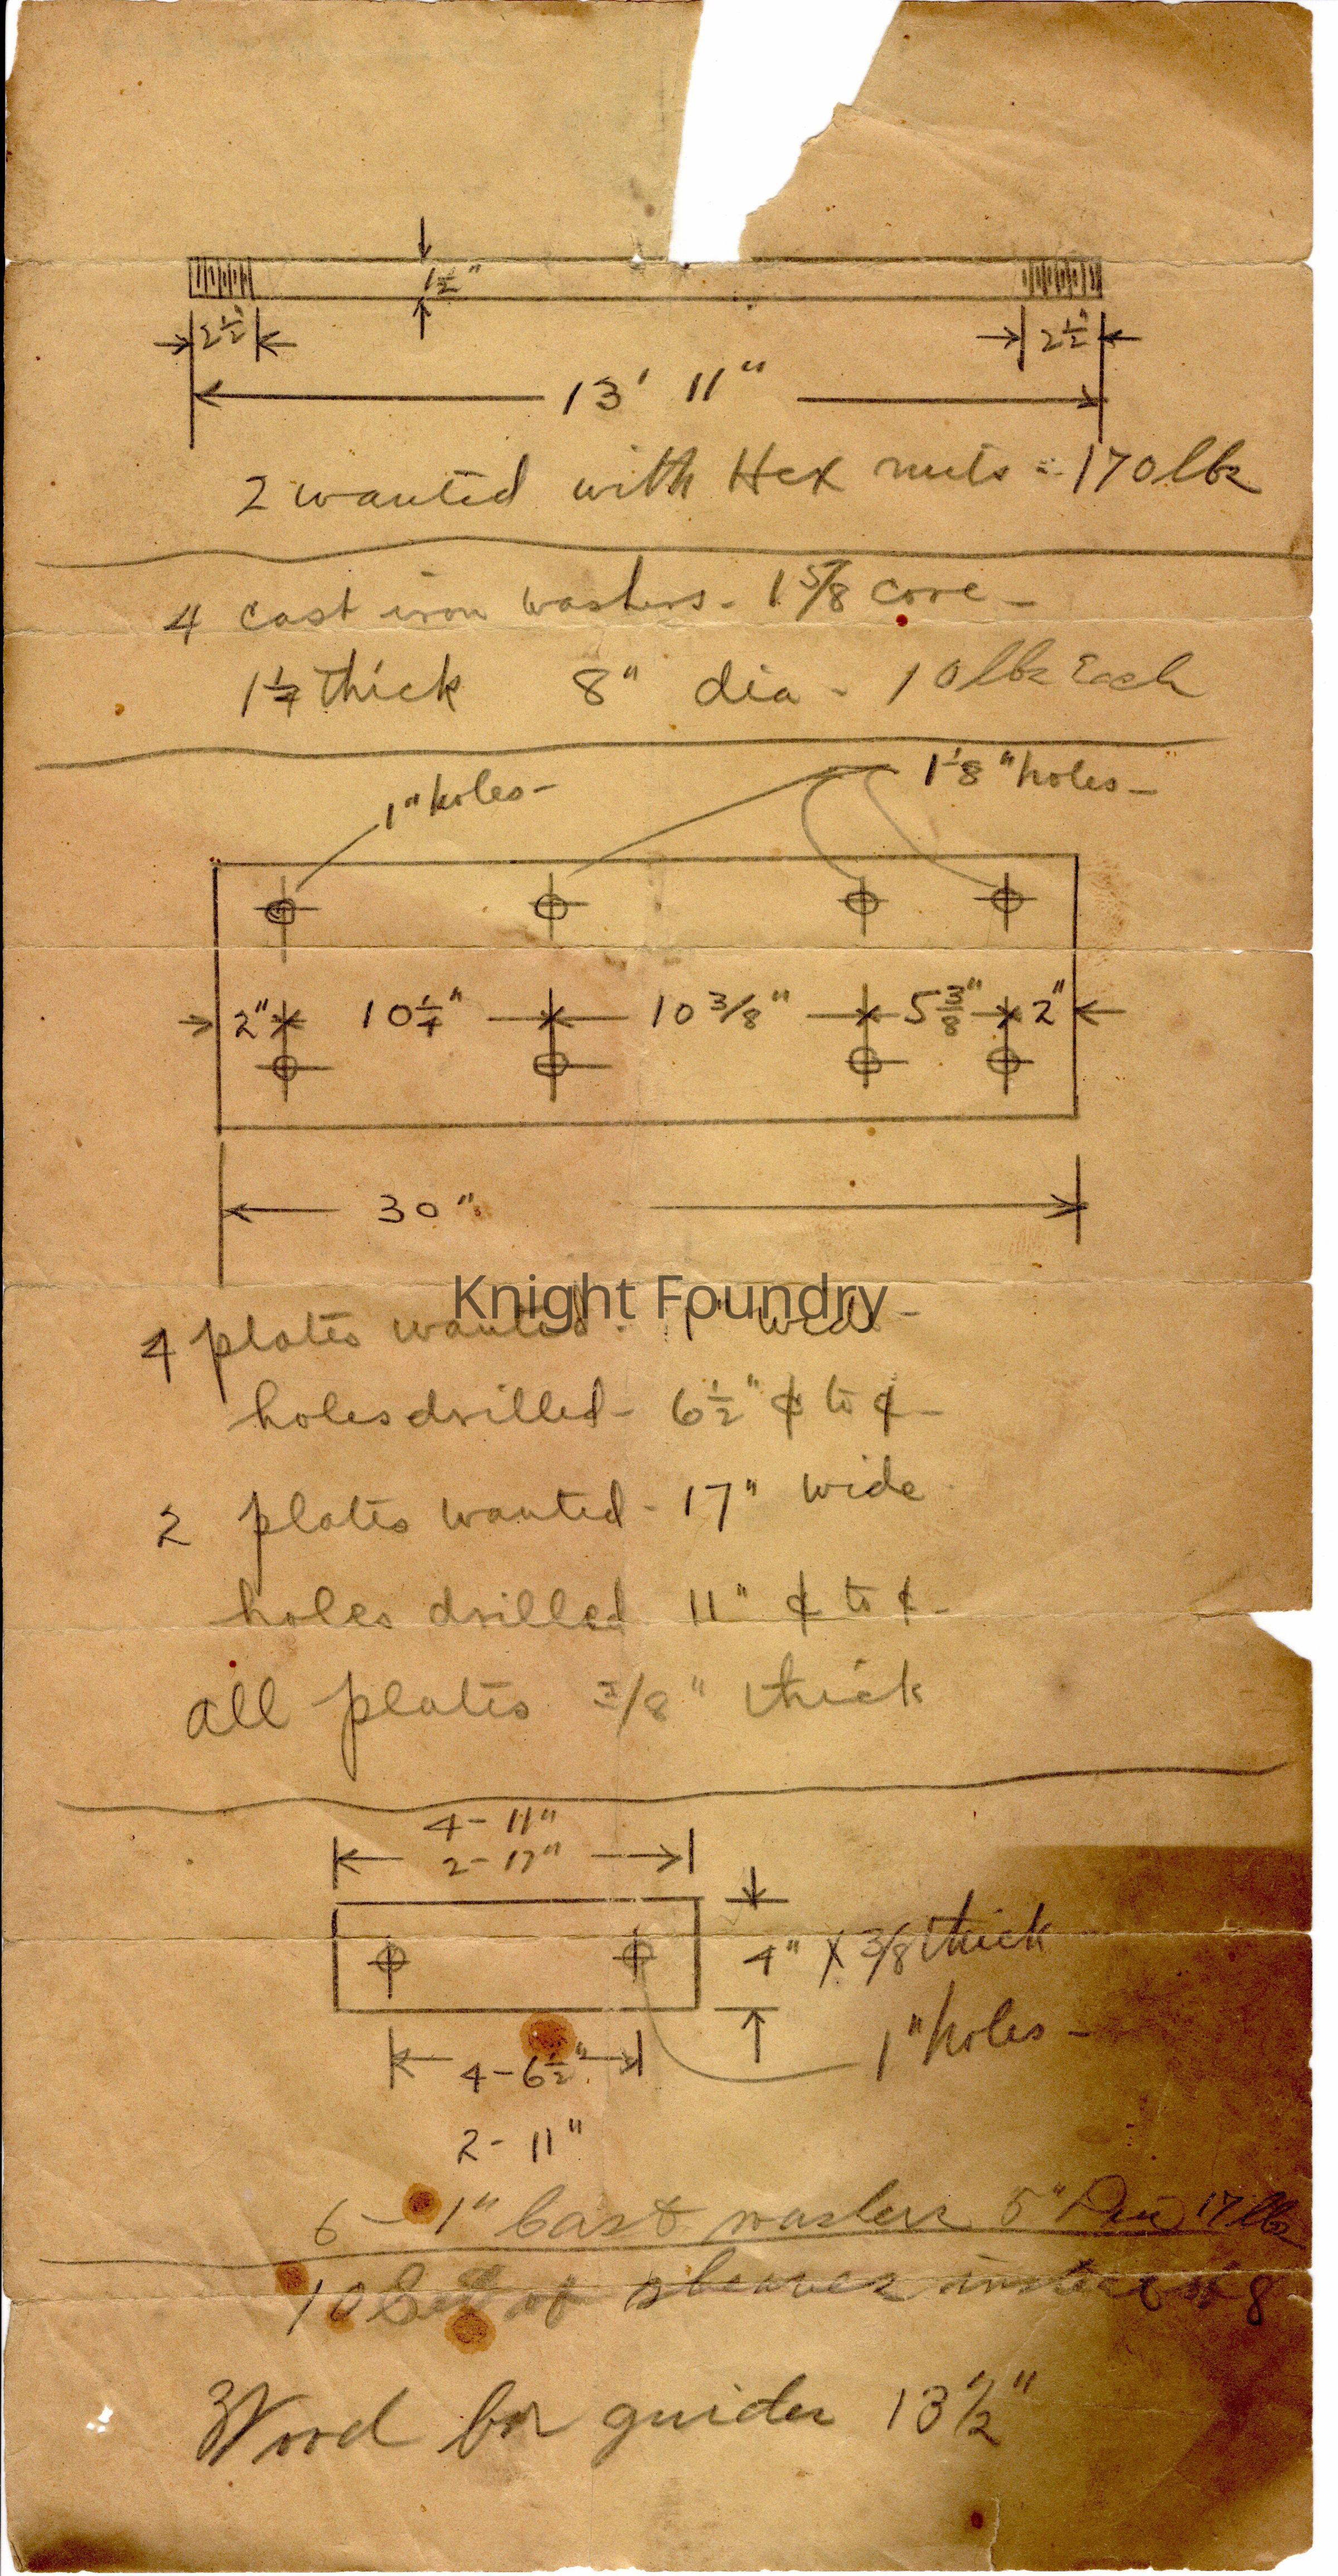 1½"
2½" 2½"
13' 11"
2 wanted with Hex nuts = 170 lbs
4 cast iron washers - 1 5/8 core -
1¼ thick 8" dia - 10 lbs Each
1" holes - 1 1/8" holes -
2" 10¼" 10 3/8" 5 3/8" 2"
30"
Knight Foundry
4 plates wanted - wide -
holes drilled - 6½" ¢ to ¢ -
2 plates wanted - 17" wide
holes drilled 11" ¢ to ¢ -
all plates 3/8" thick
4 - 11"
2 - 17"
4" x 3/8 thick
1" holes -
4 - 6½"
2 - 11"
6 - 1" Cast washers 5" 17 lbs
10 of sheaves instead of 8
Wood for guides 13½"